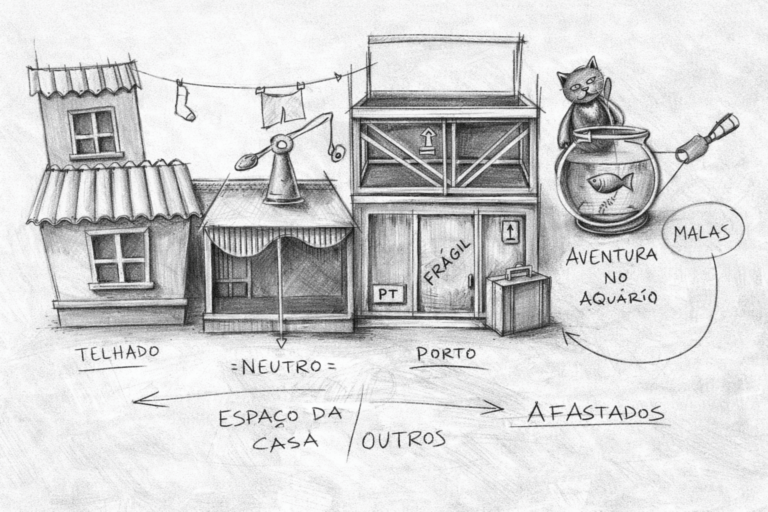 FRÁGIL
PT
MALAS
AVENTURA
NO
AQUÁRIO
TELHADO
=NEUTRO=
PORTO
ESPAÇO DA
CASA / OUTROS
AFASTADOS